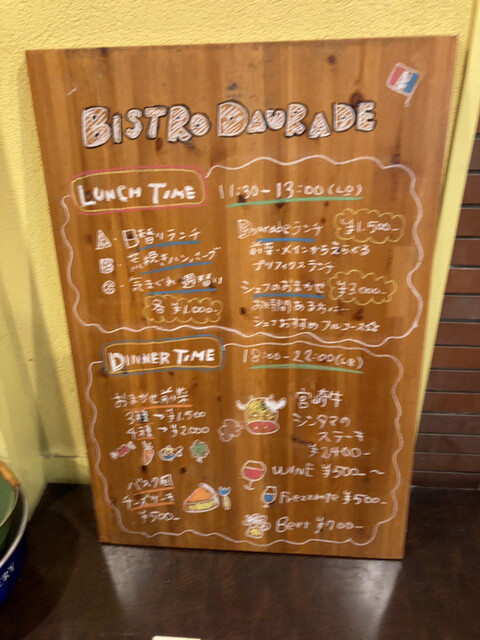 BISTRO DAURADE
LUNCH TIME
11:30-13:00(L.O)
A・日替りランチ
B・炭焼きハンバーグ
C・気まぐれ週替り
各¥1,000-
Dauradeランチ ¥1,500-
前菜・メインからえらべる
プリフィクスランチ
シェフのおまかせ ¥3,000-
お時間ある方に…
シェフおすすめフルコース☆
DINNER TIME
18:00-22:00(L.O)
おまかせ前菜
3種→¥1,500
4種→¥2,000
バスク風
チーズケーキ
¥500-
宮崎牛
シンタマの
ステーキ
¥2,400-
WINE ¥500~
¥500-
Beer ¥700-